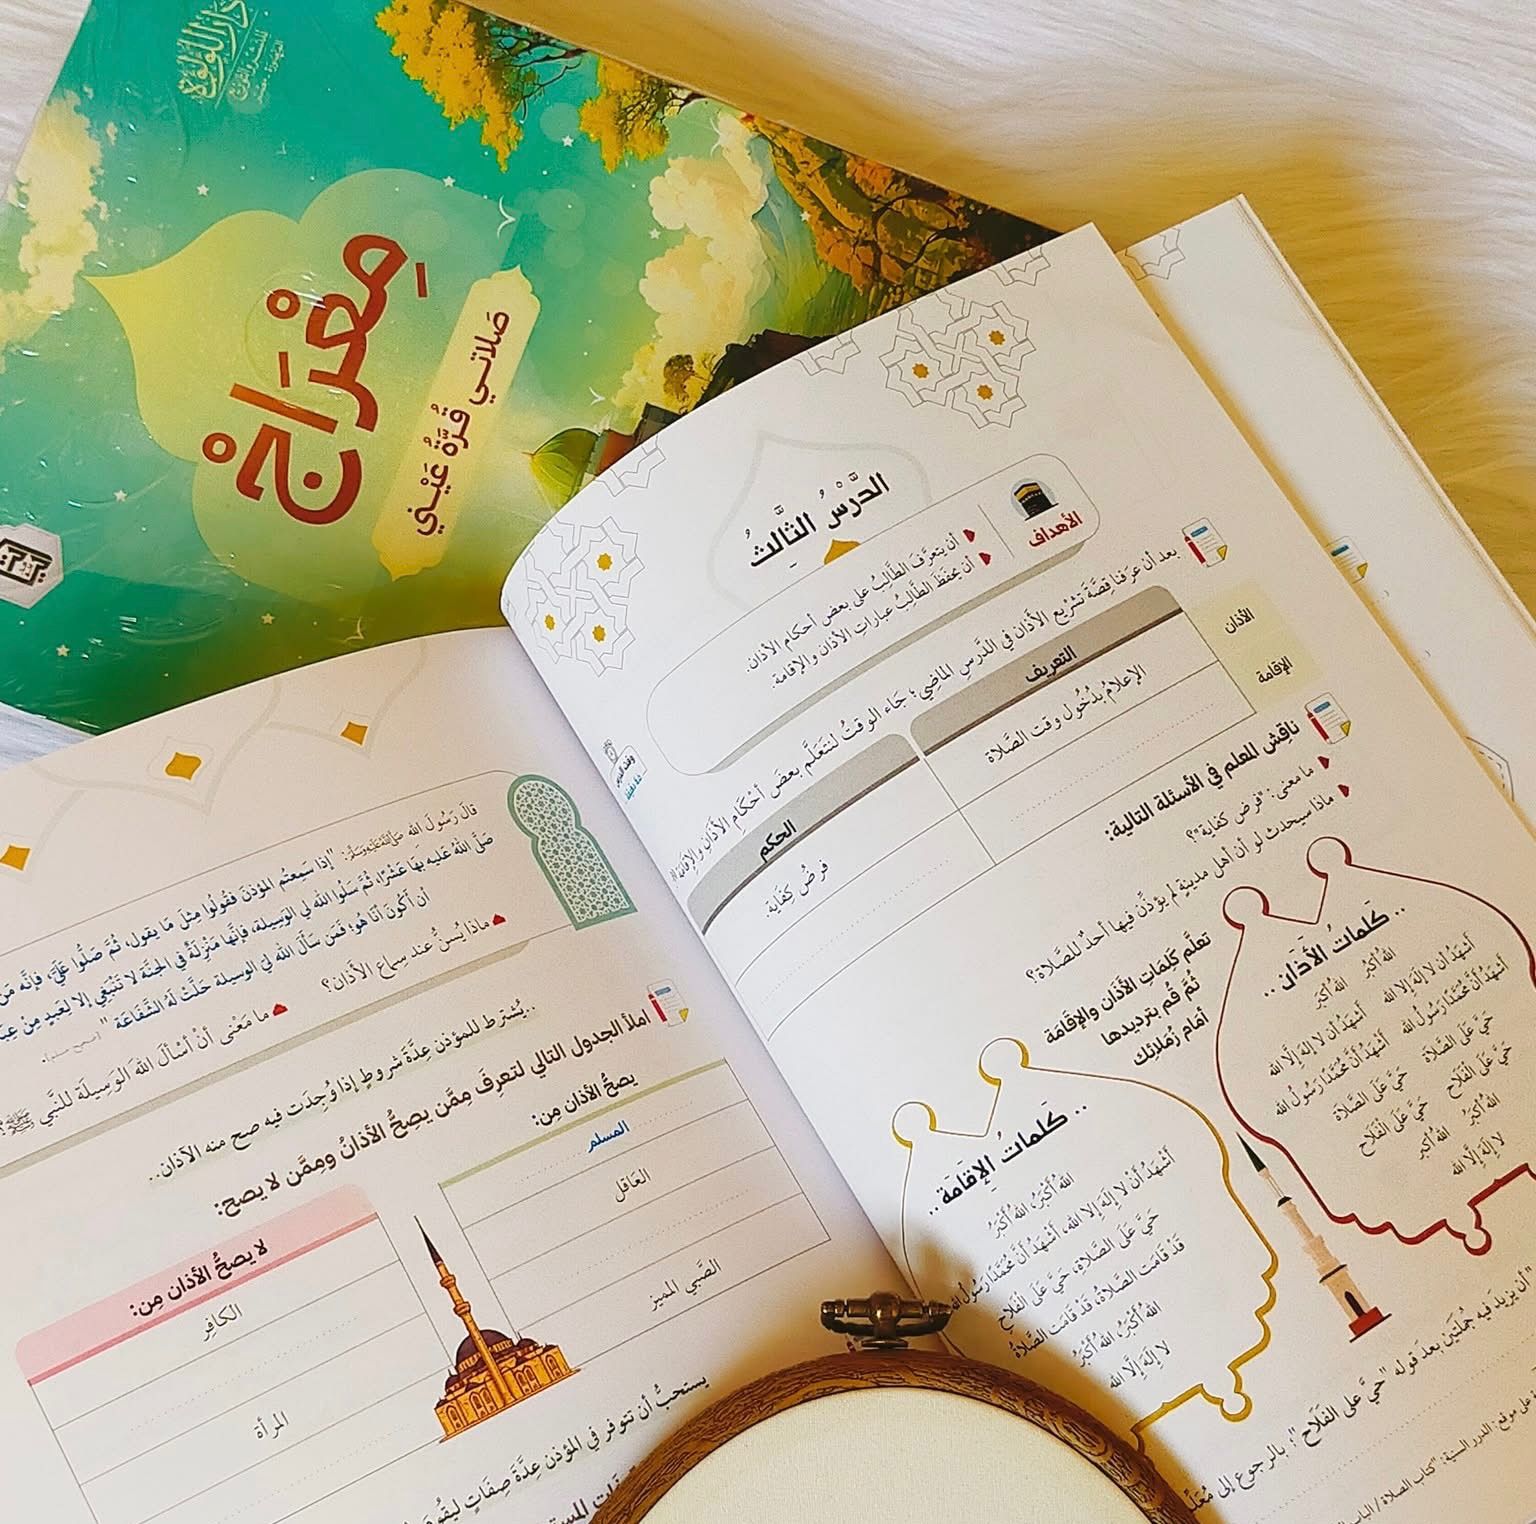 دار اللؤلؤة
للنشر والتوزيع
المنصورة - مصر
مِعْرَاجْ
صَلاتـي قُرَّةُ عَيْـني
الدَّرْسُ الثَّالِثُ
الأهداف
أن يتعرَّفَ الطَّالِبُ على بعض أحكام الأذان.
أن يحفَظَ الطَّالِبُ عباراتِ الأذان والإقامة.
بعد أن عرَفنا قِصَّةَ تشْريع الأَذَان في الدَّرسِ الماضِي؛ جَاء الوقتُ لنتَعَلَّم بعضَ أَحْكَامِ الأَذَانِ والإِقَامَة
التعريف
الحكم
الأذان
الإعلامُ بدُخُول وقت الصَّلاة
فرضُ كِفَاية.
الإقامة
ناقِش المعلم في الأسئلة التالية:
ما معنى: "فرض كفاية"؟
ماذا سيحدث لو أن أهل مدينةٍ لم يؤذِّن فيها أحدٌ للصَّلاة؟
تعلَّم كَلِماتِ الأَذَان والإِقَامَة
ثُمَّ قُم بترديدها
أمَام زُمَلائِك
.. كَلِماتُ الأَذَان ..
اللهُ أكبَر اللهُ أكبَر
أشْهَدُ أن لا إلهَ إلا الله أشْهَدُ أن لا إلهَ إلَّا الله
أشْهَدُ أنَّ مُحَمَّدًا رَسُولُ الله أشْهَدُ أنَّ مُحَمَّدًا رَسُولُ الله
حَيَّ عَلَى الصَّلَاة حَيَّ عَلَى الصَّلَاة
حَيَّ عَلَى الْفَلَاح حَيَّ عَلَى الْفَلَاح
اللهُ أكبَرُ اللهُ أكبر
لا إلَهَ إلَّا الله
.. كَلِماتُ الإِقَامَة ..
اللهُ أَكْبَرُ، اللهُ أَكْبَرُ
أَشْهَدُ أَنْ لَا إِلَهَ إِلَّا الله، أَشْهَدُ أَنَّ مُحَمَّدًا رَسُولُ الله
حَيَّ عَلَى الصَّلاةِ، حَيَّ عَلَى الْفَلَاحِ
قَدْ قَامَت الصَّلاة، قَدْ قَامَت الصَّلاةُ
اللهُ أَكْبَرُ، اللهُ أَكْبَرُ
لا إِلَهَ إِلَّا الله
أن يزيدَ فيه جُملَتَين بعدَ قوله "حيَّ على الفَلَاح"؛ بالرجوع إلى مُعَلِّ
على موقع: الدرر السنية: "كتاب الصلاة / الباب
قالَ رَسُولَ الله ﷺ: "إِذا سَمِعتُم المؤذنَ فقُولُوا مِثلَ مَا يقول، ثُمَّ صَلُّوا عَلَيَّ؛ فإنَّه مَن
صَلَّى اللهُ عَليه بهَا عَشْرًا؛ ثُمَّ سَلُوا الله لي الوَسِيلة، فإنَّها مَنْزِلَةٌ في الجنَّة لا تَنْبَغِي إلا لعَبدٍ مِنْ عِبَا
أن أكُونَ أنَا هُو؛ فَمَن سَأَلَ الله ليَ الوسيلة حَلَّتْ لَهُ الشَّفَاعَة " (صحيح مسلم).
ماذا يُسنُّ عند سِماع الأذان؟
ما مَعْنى أنْ أسْألَ اللهَ الوَسِيلَةَ للنَّبي ﷺ؟
..يُشترط للمؤذن عِدَّةَ شروطٍ إذا وُجِدَت فيه صح منه الأذان..
املأ الجدول التالي لتعرِفَ مِمَّن يصِحُّ الأذانُ ومِمَّن لا يصح:
يصحُّ الأذان مِن:
المسلم
العَاقل
الصَّبي المميز
لا يصحُّ الأذان مِن:
الكافِر
المرأة
يستحبُّ أن تتوفر في المؤذن عِدَّةَ صِفَاتٍ ليقُو